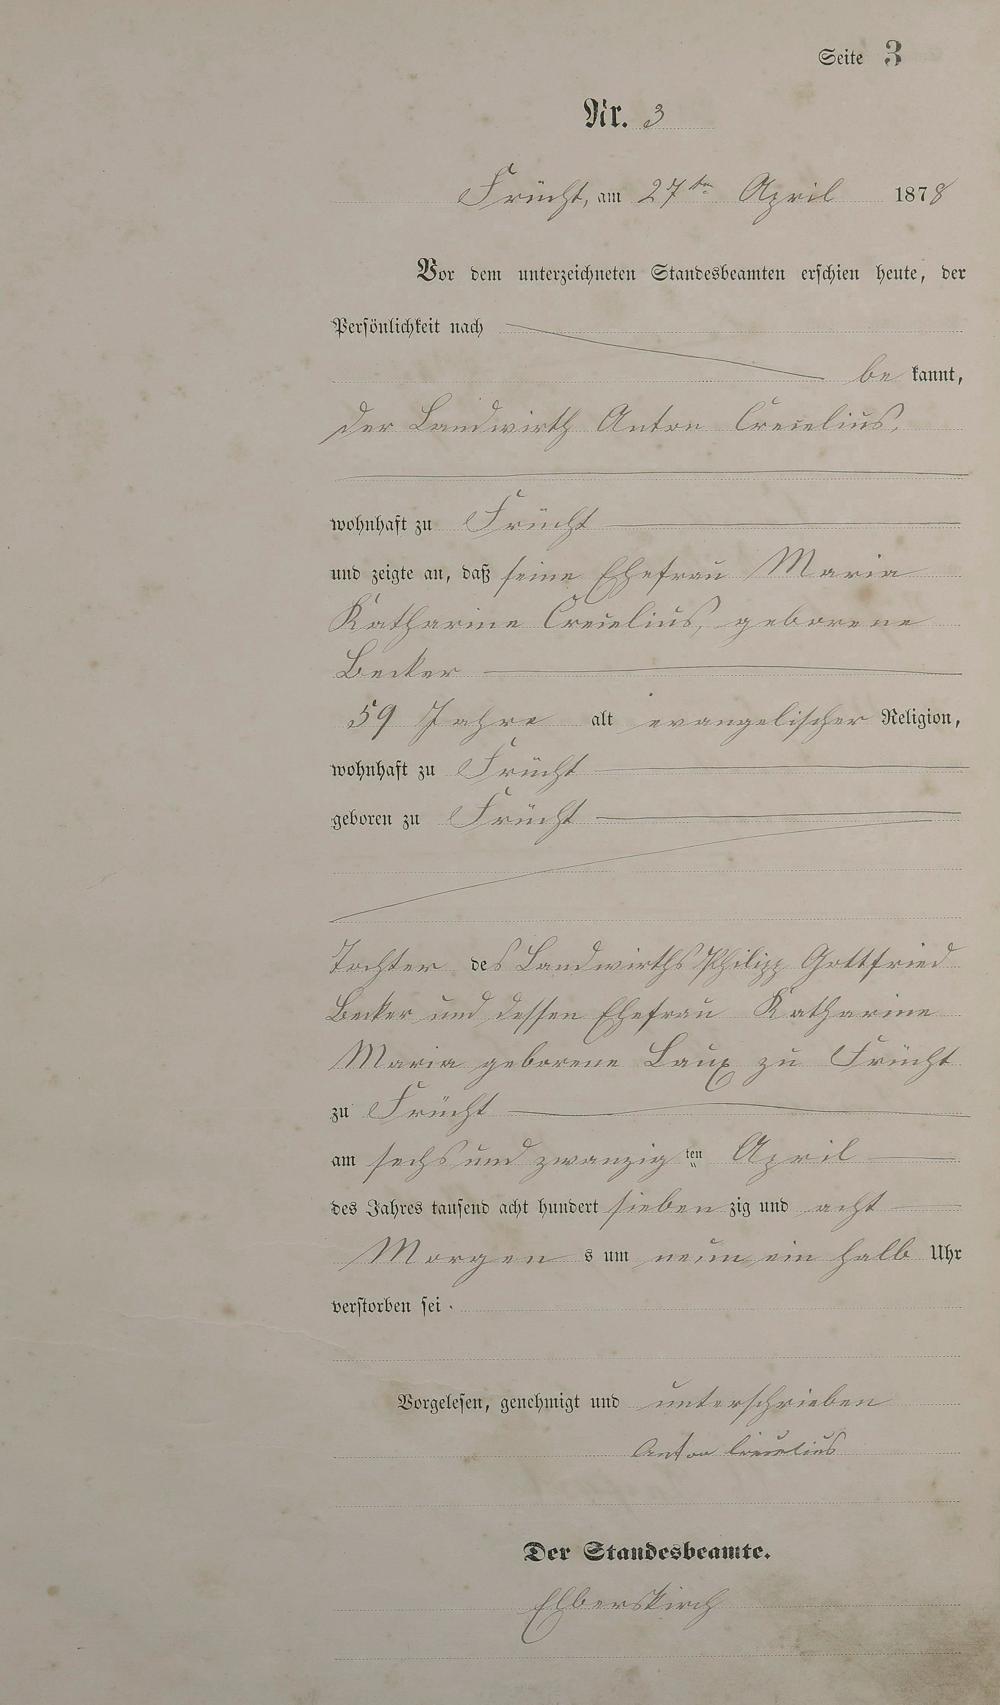 Seite 3
Nr. 3
Frücht, am 27ten April 1878
Vor dem unterzeichneten Standesbeamten erschien heute, der
Persönlichkeit nach
be kannt,
der Landwirth Anton Crecelius,
wohnhaft zu Frücht
und zeigte an, daß seine Ehefrau Maria
Katharine Crecelius, geborene
Becker
59 Jahre alt evangelischer Religion,
wohnhaft zu Frücht
geboren zu Frücht
Tochter des Landwirths Philipp Gottfried
Becker und dessen Ehefrau Katharine
Maria geborene Laux zu Frücht
zu Frücht
am sechs und zwanzig ten April
des Jahres tausend acht hundert sieben zig und acht
Morgen s um neun ein halb Uhr
verstorben sei.
Vorgelesen, genehmigt und unterschrieben
Anton Crecelius
Der Standesbeamte.